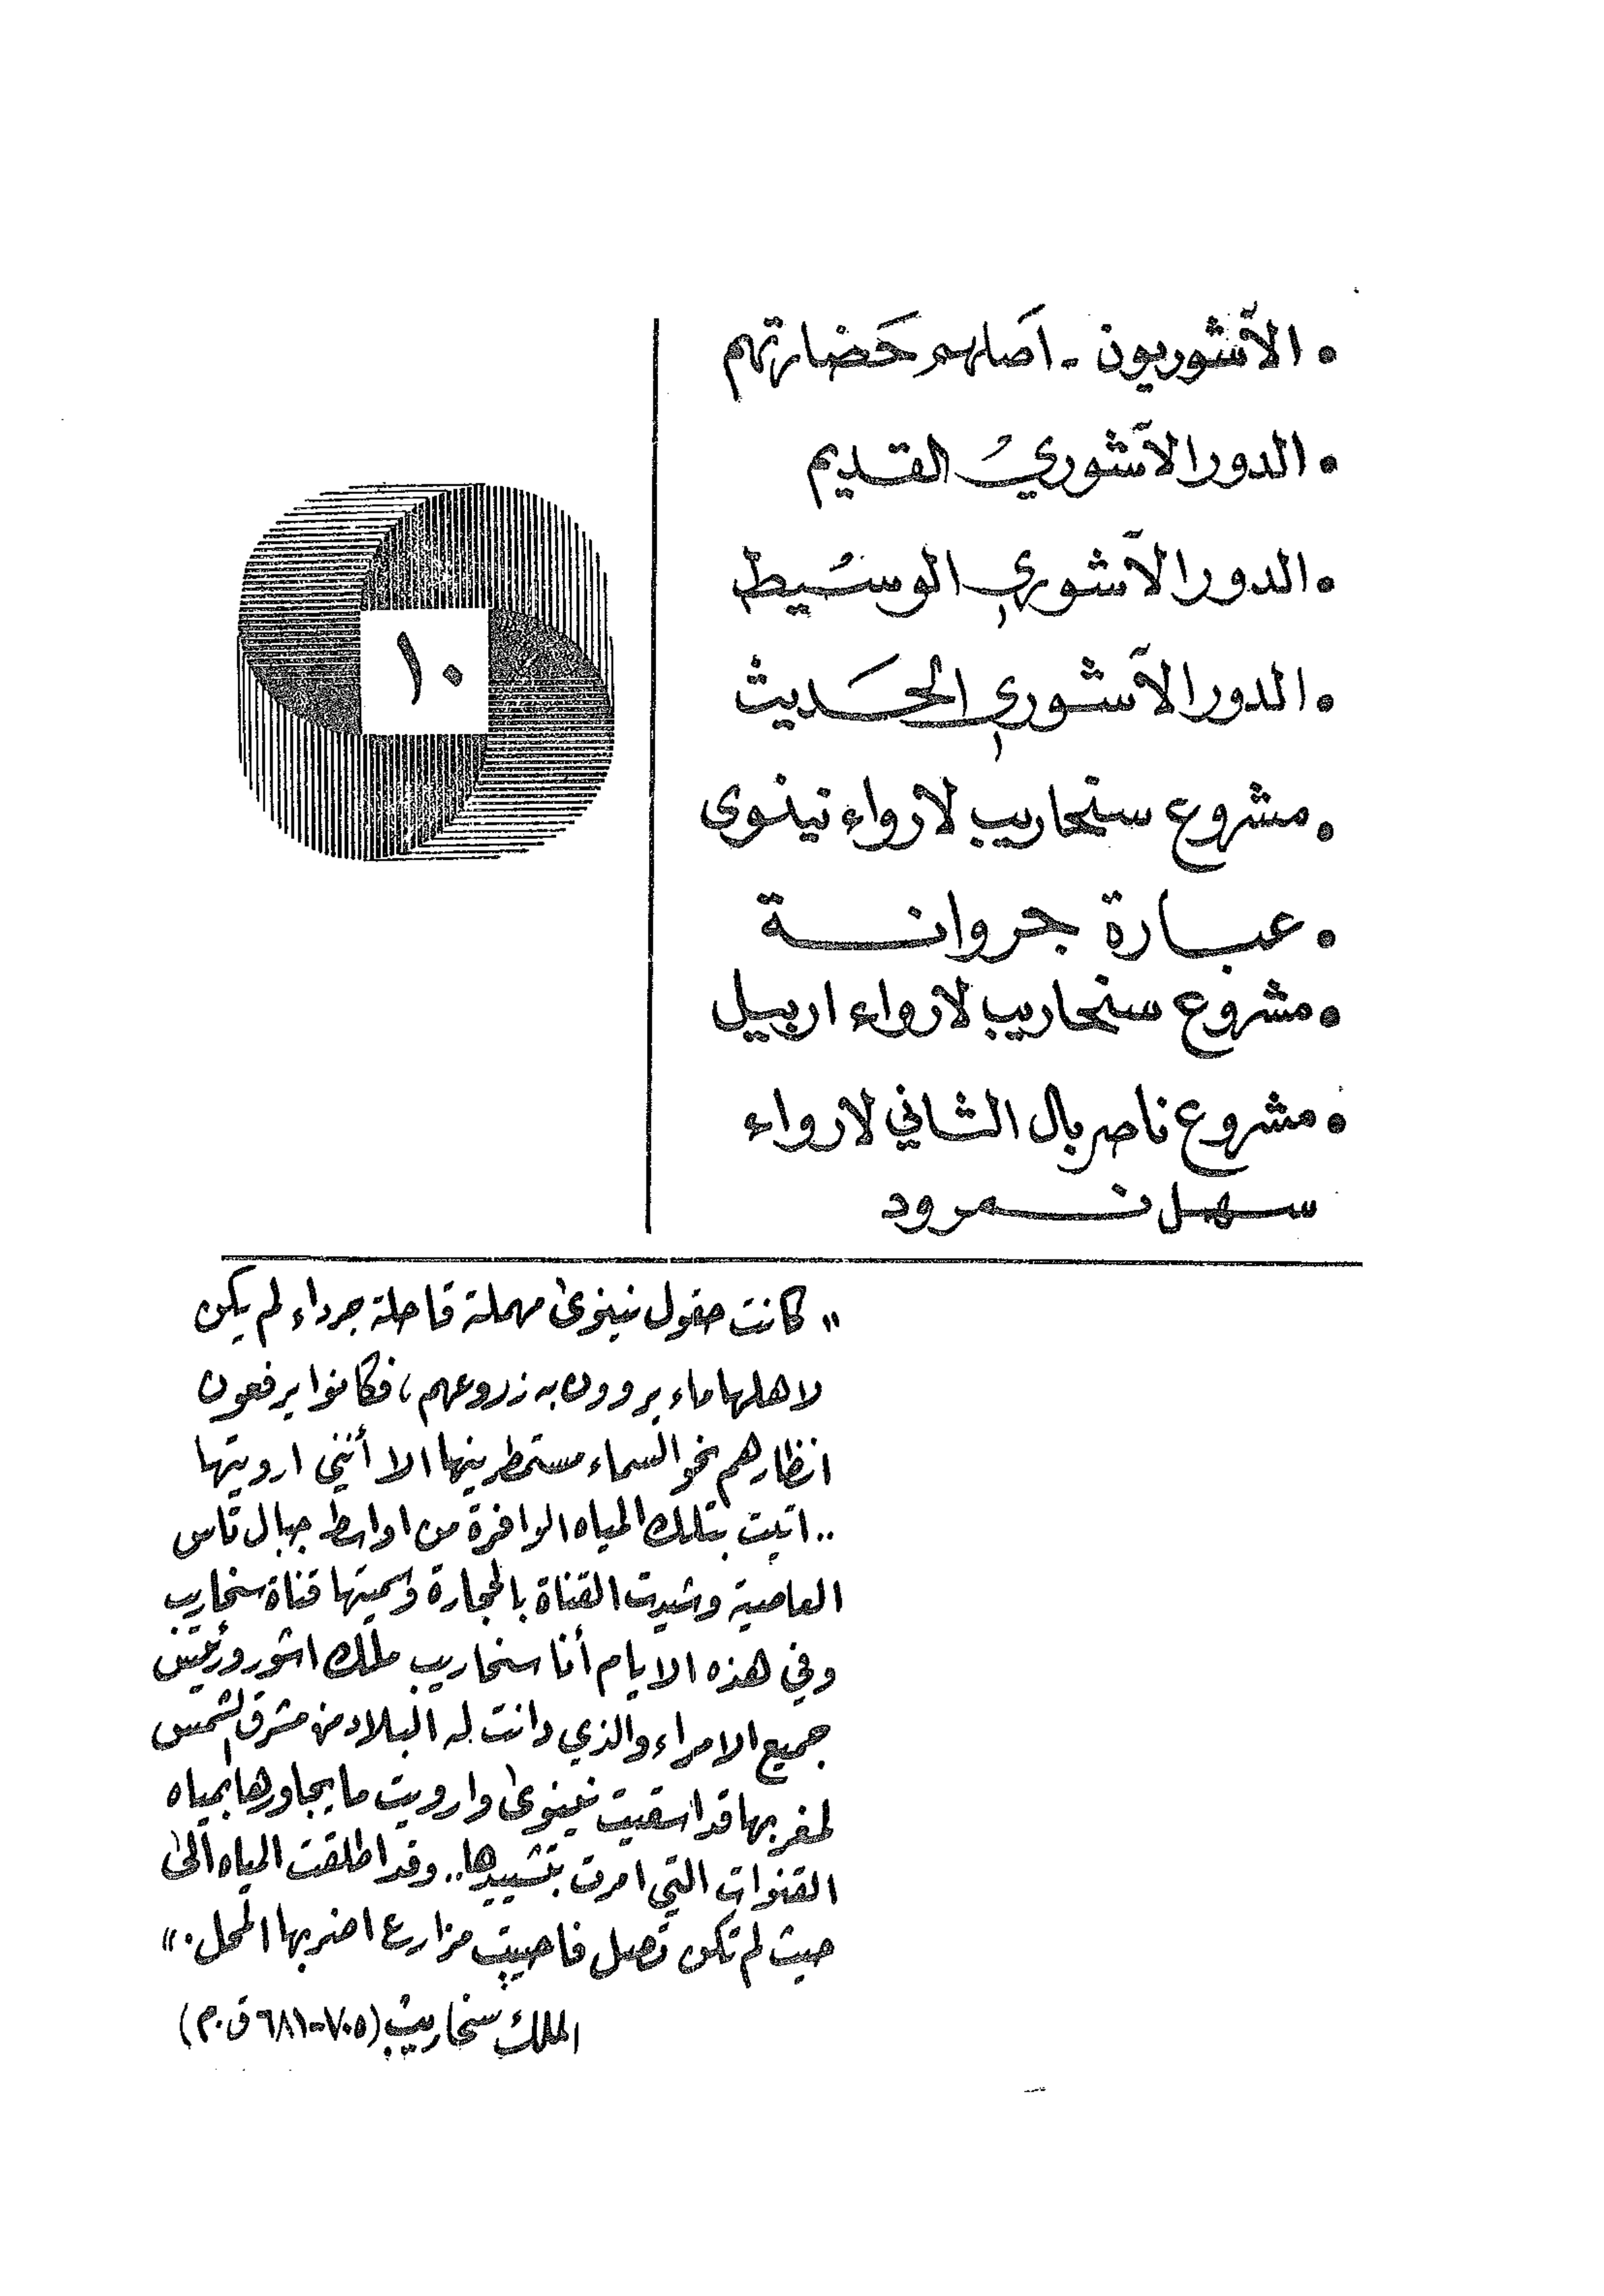 • الآشوريون - اَصلهم حَضارتهم
• الدور الآشوريُ القديم
• الدور الآشوري الوسُيط
• الدور الآشوري الحَديث
• مشروع سنحاريب لارواء نينوى
• عبارة جروانة
• مشروع سنحاريب لارواء اربيل
• مشروع ناصر بال الثاني لارواء
سهل نمرود
١٠
" كانت حقول نينوى مهملة قاحلة جرداء لم يكن
لاهلها ماء يروون به زروعهم، فكانوا يرفعون
انظارهم نحو السماء مستمطرينها الا أنني ارويتها
.. اتيت بتلك المياه الوافرة من اواسط جبال تاس
العاصية وشيدت القناة بالحجارة وسميتها قناة سنحاريب
وفي هذه الايام أنا سنحاريب ملك اشور ورئيس
جميع الامراء والذي دانت له البلاد من مشرق الشمس
لمغربها قد اسقيت نينوى وارويت ما يجاورها بمياه
القنوات التي امرت بتشييدها.. وقد اطلقت المياه الى
حيث لم تكن تصل فاحييت مزارع اضر بها المحل."
الملك سنحاريب (٧٠٥-٦٨١ ق.م)